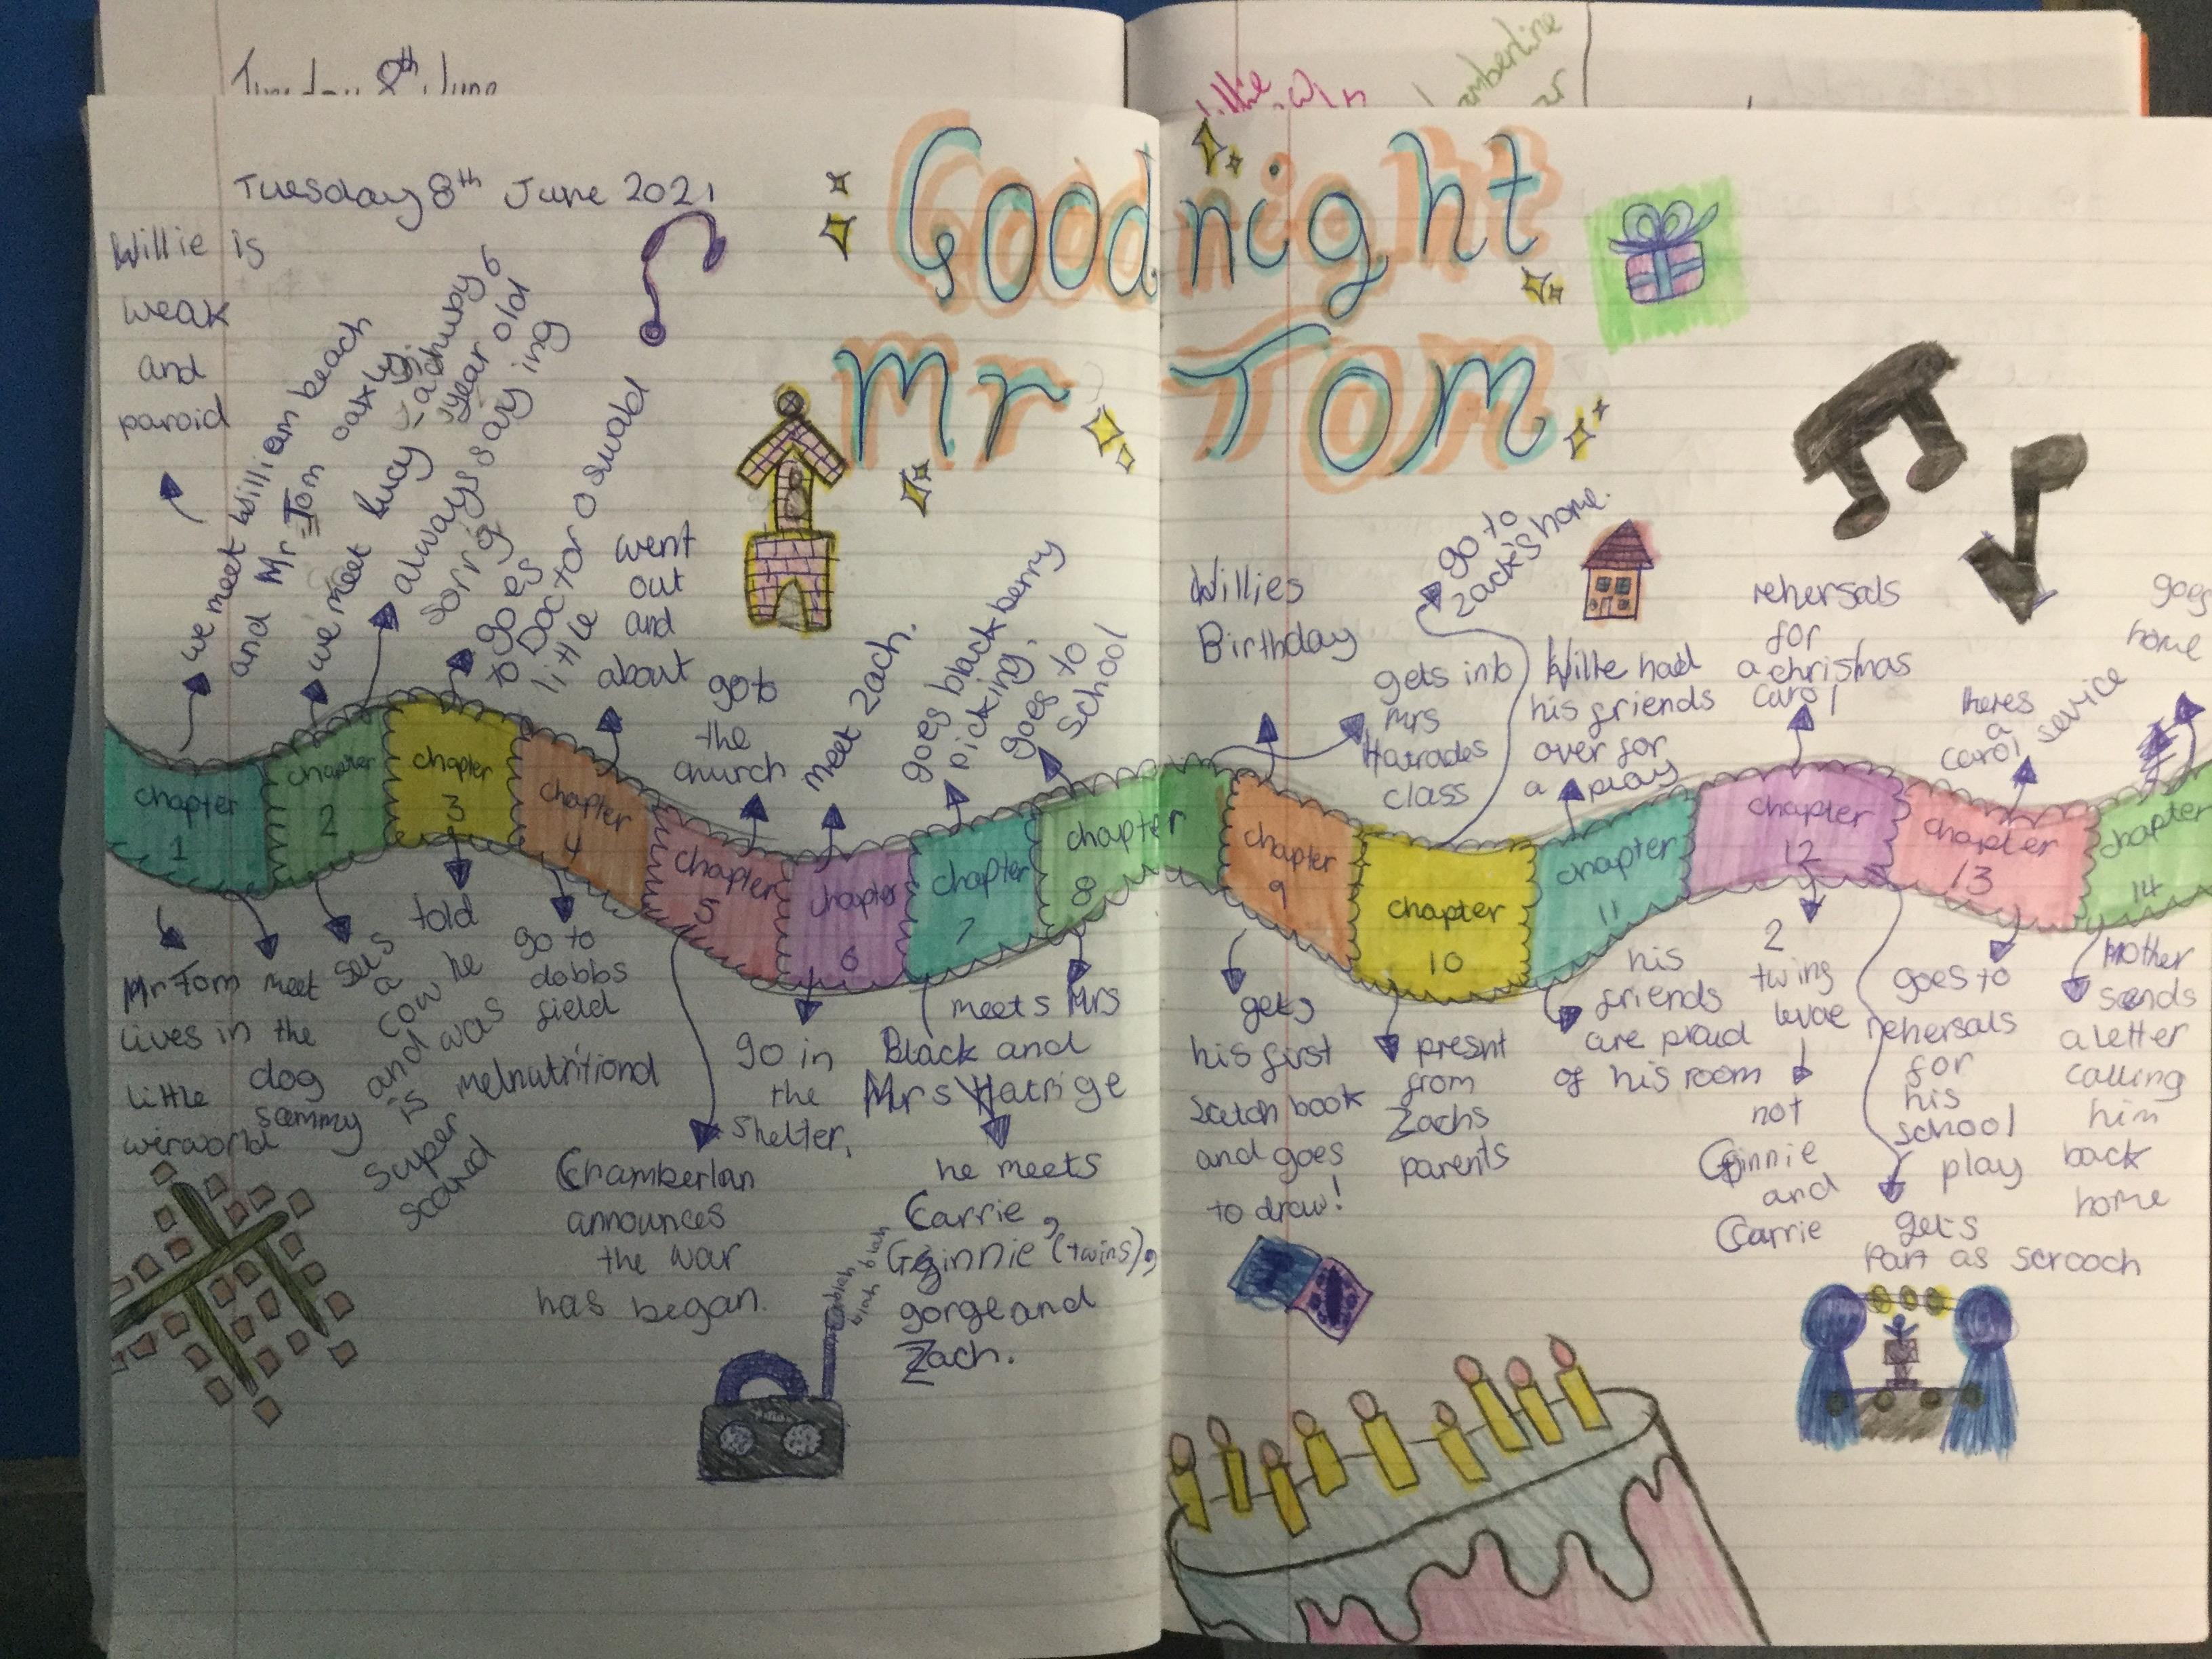 Tuesday 8th June
Willie
Tuesday 8th June 2021
Good night
Mr Tom
Willie is
weak
and
paroid
we meet William beach
and Mr Tom oakley.
we meet lucy - a chubby 6
year old
always saying
sorry
goes
to Doctor
little Oswald
went
out
and
about
go to
the
church
meet Zach.
goes blackberry
picking.
goes to
School
Willies
Birthday
gets into
Mrs
Hatrades
class
go to
zack's home.
Willie had
his friends
over for
a play
rehersals
for
a christmas
carol
theres
a
carol
sevice
goes
home
chapter
1
chapter
2
chapter
3
chapter
4
chapter
5
chapter
6
chapter
7
chapter
8
chapter
9
chapter
10
chapter
11
chapter
12
chapter
13
chapter
14
Mr Tom
lives in
little
wirworld
meet
the
dog
sammy
sees
a
cow
and
is
super
scared
told
he
was
melnutritiond
go to
dobbs
field
Chamberlan
announces
the war
has began.
go in
the
shelter.
meets Mrs
Black and
Mrs Hatrige
he meets
Carrie,
Ginnie (twins),
gorge and
Zach.
gets
his first
scetch book
and goes
to draw!
presnt
from
Zachs
parents
his
friends
are proud
of his room
2
twins
levae
not
Ginnie
and
Carrie
goes to
rehersals
for
his
school
play
gets
Part as scrooch
Mother
sends
a letter
calling
him
back
home